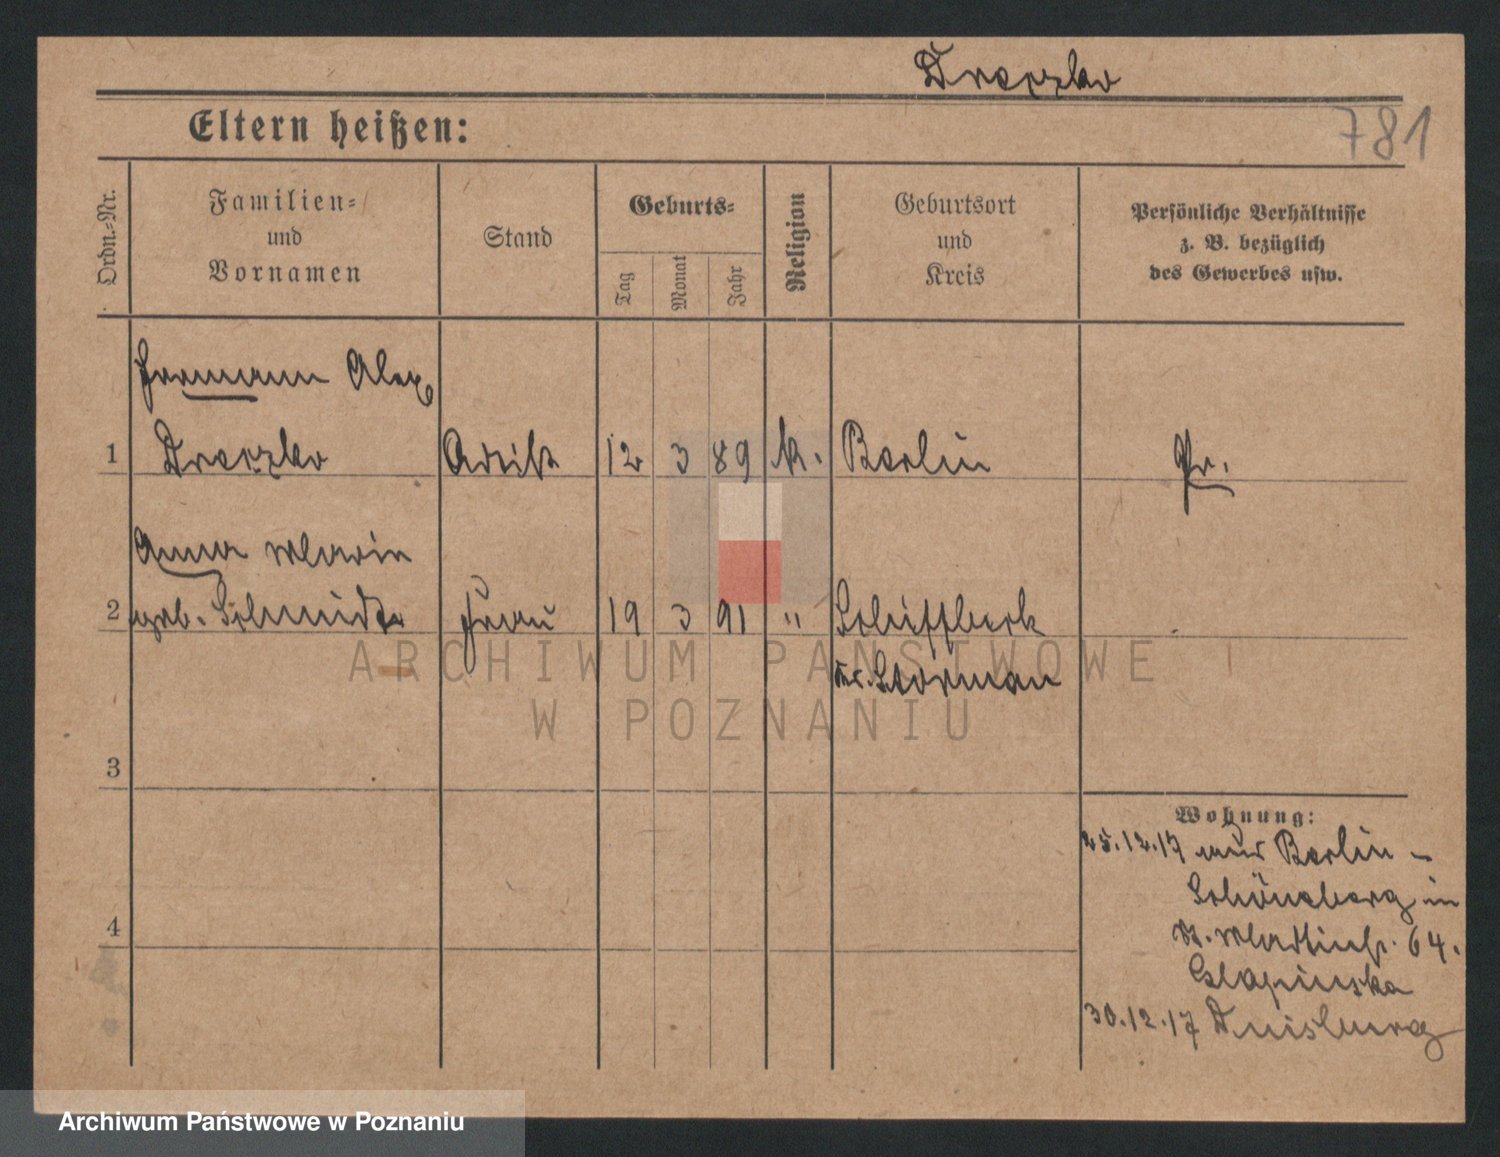 Draczko
781
Eltern heißen:
Ordn.-Nr.
Familien-
und
Vornamen
Stand
Geburts-
Tag
Monat
Jahr
Religion
Geburtsort
und
Kreis
Persönliche Verhältnisse
z. B. bezüglich
des Gewerbes usw.
Hermann Alex
1 Draczko Artist 12 3 89 k. Berlin Pr.
Anna Marie
2 geb. Schmidt Frau 19 3 91 " Schiffbeck
Kr. Storman
ARCHIWUM PAŃSTWOWE
W POZNANIU
3
Wohnung:
25.12.17 aus Berlin-
Schöneberg in
St. Martinstr. 64.
Slapinska
4
30.12.17 Duisburg
Archiwum Państwowe w Poznaniu